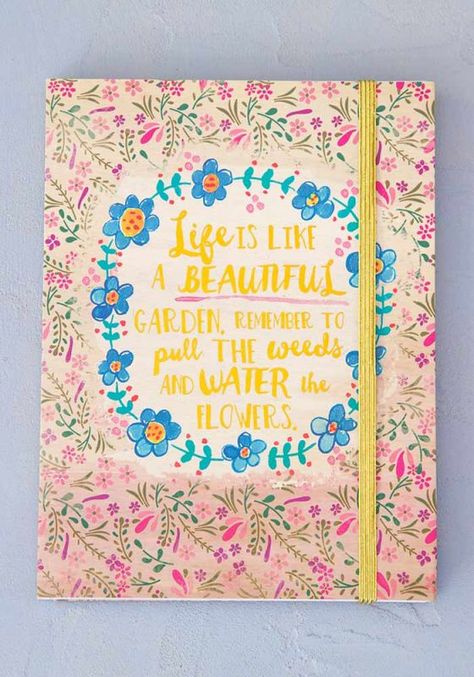 Life IS LIKE
A BEAUTIFUL
GARDEN. REMEMBER TO
pull THE weeds
AND WATER the
FLOWERS.